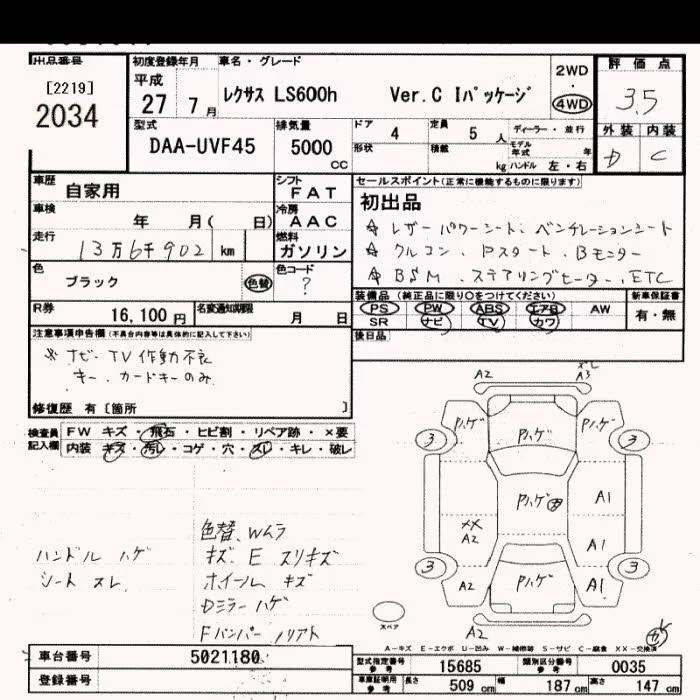 出品番号
[2219]
2034
初度登録年月
平成
27 7 月
車名・グレード
レクサス LS600h Ver.C Iパッケージ
2WD
・
4WD
評価点
3.5
外装 内装
D C
型式
DAA-UVF45
排気量
5000
cc
ドア 4
定員 5 人
ディーラー・並行
形状
積載 kg
モデル年式 年
ハンドル 左・右
車歴
自家用
シフト
FAT
車検
年 月( 日)
冷房
AAC
走行
13万6千902 km
燃料
ガソリン
色
ブラック
色替
色コード
?
R券 16,100 円
名変通知期限 月 日
セールスポイント(正常に機能するものに限ります)
初出品
☆ レザーパワーシート、ベンチレーションシート
☆ クルコン、Pスタート、Bモニター
☆ BSM、ステアリングヒーター、ETC
装備品(純正品に限り○をつけてください)
PS PW ABS エアB AW
SR ナビ TV カワ
新車保証書
有・無
後日品
注意事項申告欄(不具合内容等は具体的に記入して下さい)
※ ナビ TV 作動不良
キー、カードキーのみ
修復歴 有 [箇所 ]
検査員記入欄
FW キズ・飛石・ヒビ割・リペア跡・×要
内装 キズ・汚レ・コゲ・穴・スレ・キレ・破レ
ハンドル ハゲ
シート スレ
色替、Wムラ
キズ E スリキズ
ホイール キズ
Dミラー ハゲ
Fバンパー ノリアト
A2 A3
Pハゲ Pハゲ Pハゲ
3 3
Pハゲ
A1
XX
A2
A1
3 3
A2 Pハゲ A1
A2
スペア
A-キズ E-エクボ U-凹み W-補修跡 S-サビ C-腐食 XX-交換済
車台番号 5021180
登録番号
型式指定番号
参考
15685
類別区分番号
参考
0035
車庫証明用
参考
長さ 509 cm 幅 187 cm 高さ 147 cm